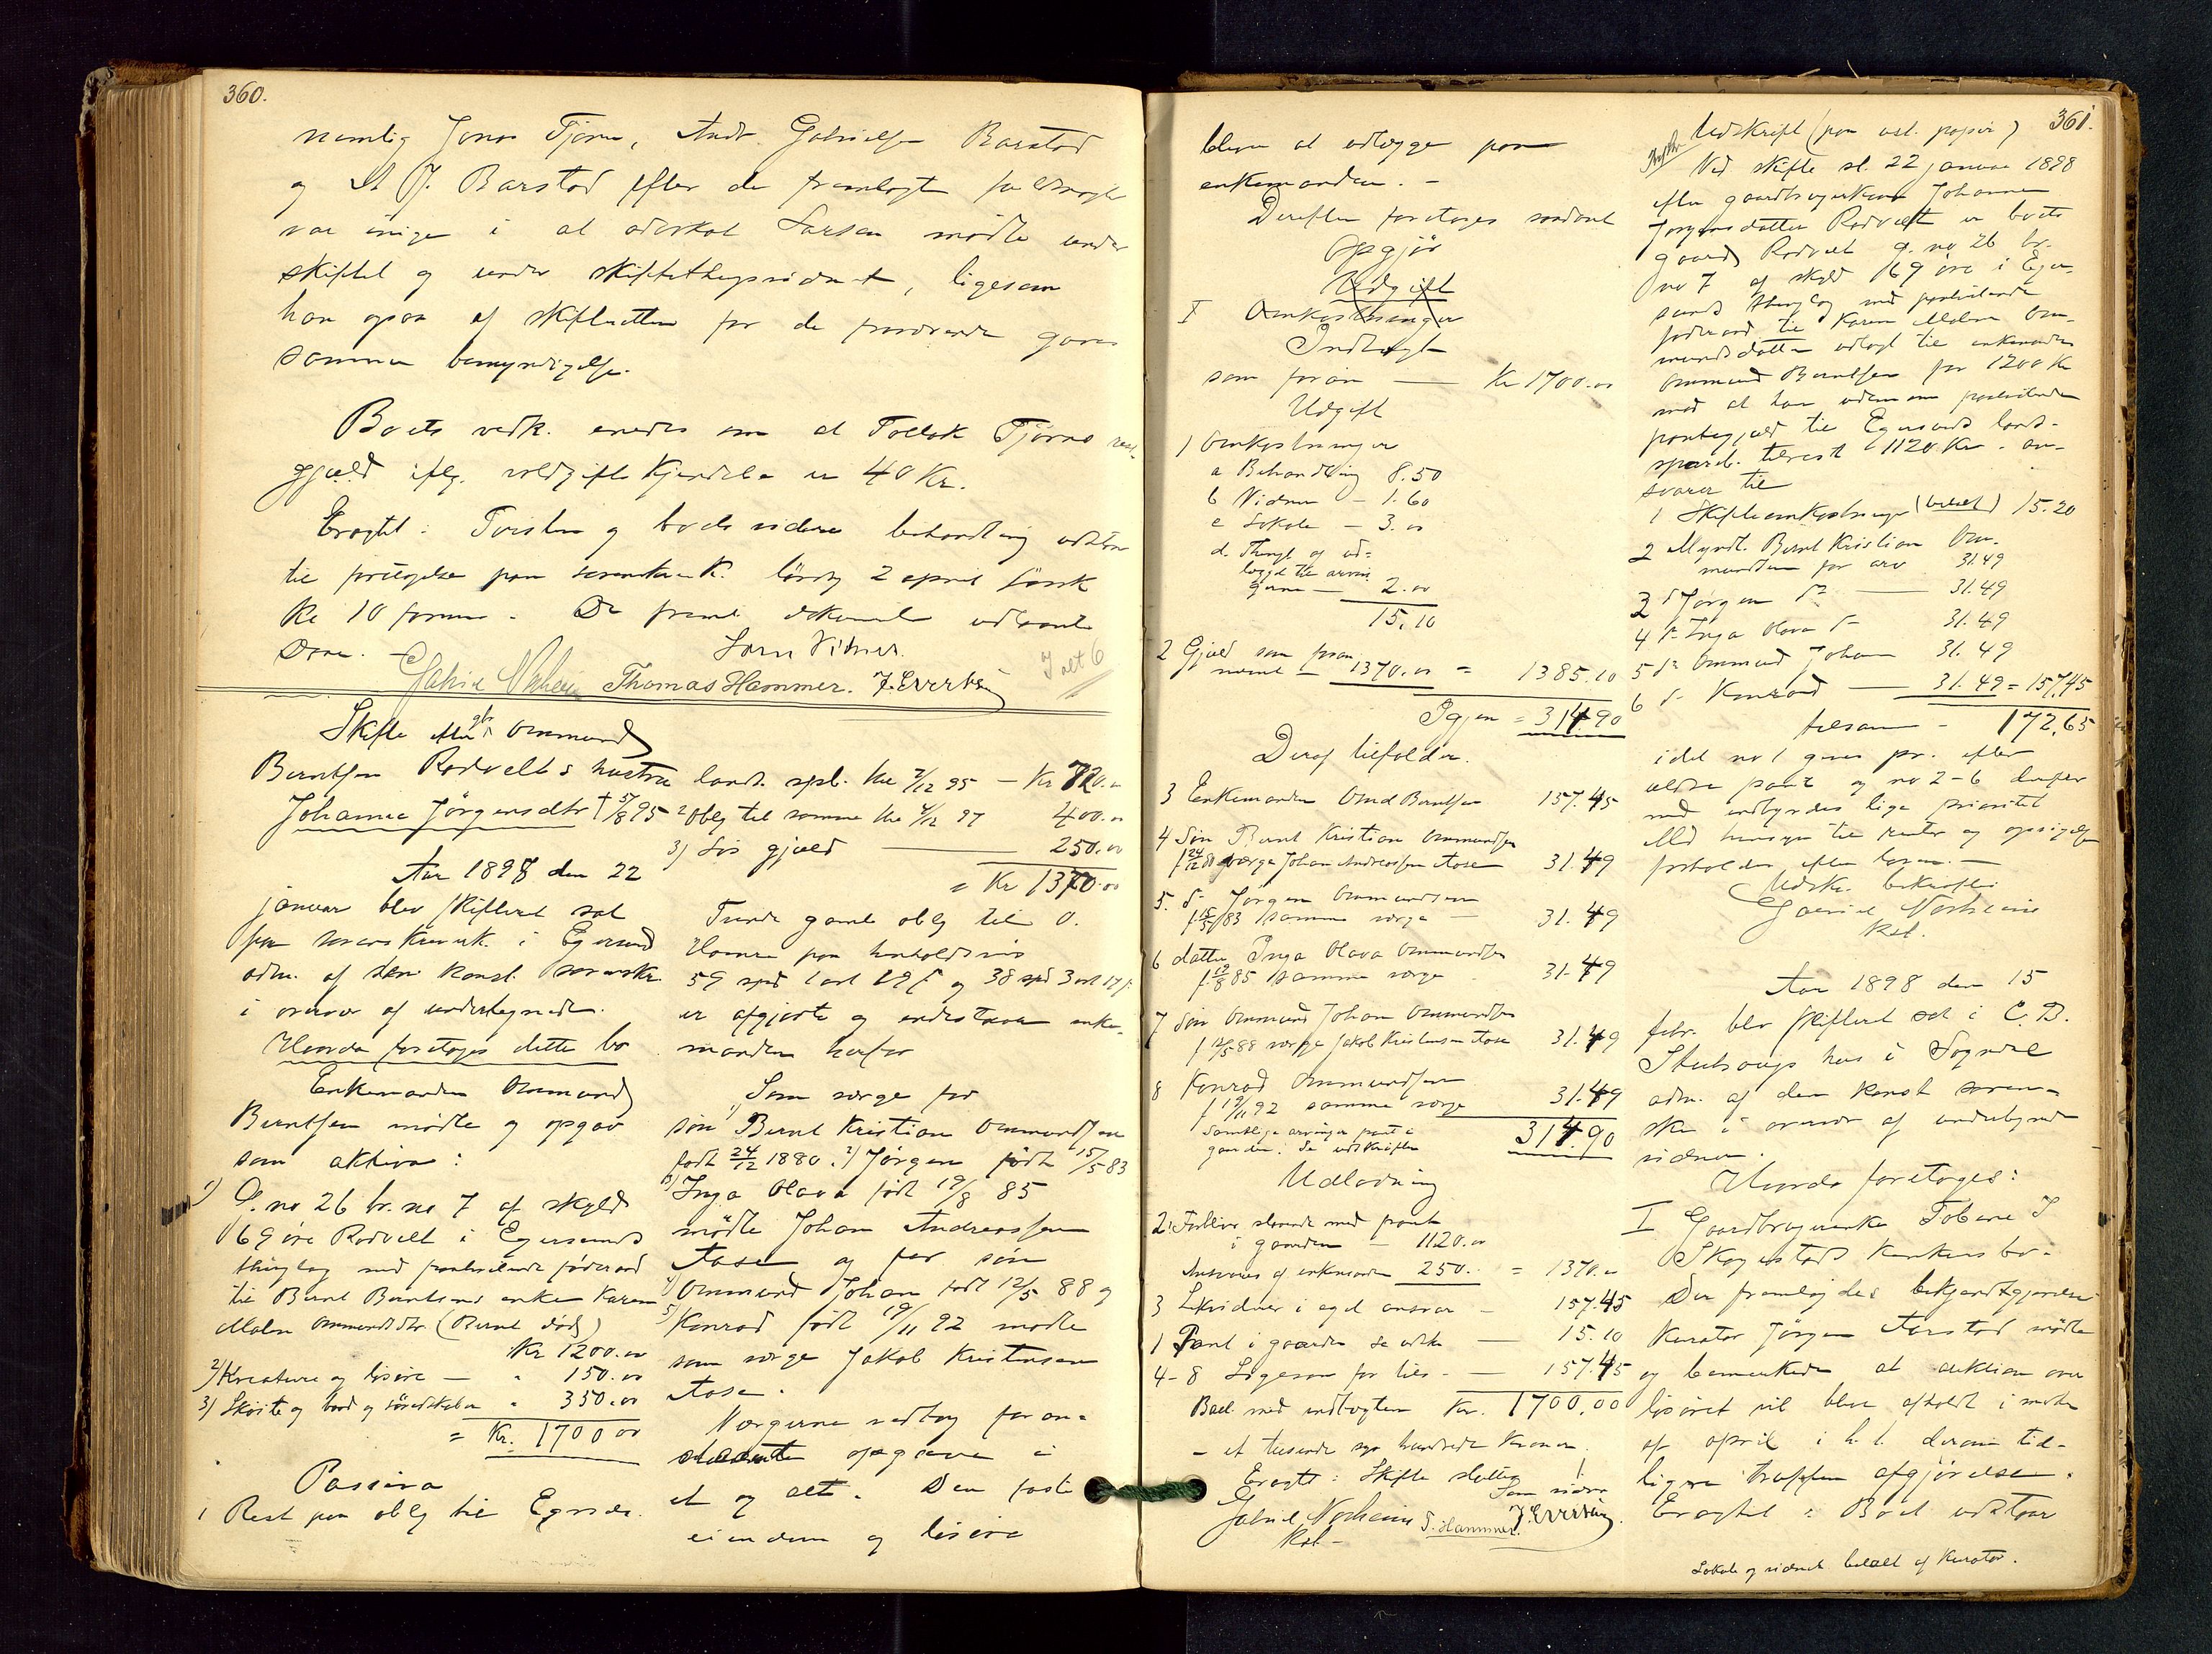 360.
nemlig Jonas Tjørn, Andr. Gabrielsen Barstad
og St J. Barstad efter de fremlagte
var enige i at advokat Larsen mødte under
skiftet og under , ligesom
han ogsaa af skifteretten for de gaves
samme bemyndigelse.
Boets vedk. enedes om at Tollak Tjørns
gjæld iflg. voldgiftskjendelse er 40 Kr.
Eragtet: Tvisten og boets videre behandling udstaar
til foretagelse paa sorenskr.k. lørdag 2 april førstk
kl 10 form. De freml dokumenter
Som Vidner.
Gabriel Thomas Hammer. J. Evertsen
I alt 6
Skifte efter gbr Ommund
Berntsen Rodvelts hustru
Johanne Jørgensdtr † 5/8 95
Aar 1898 den 22
januar blev skifteret sat
paa sorenskriverk. i Egersund
adm. af den konst. sorenskr.
i overvær af undertegnede.
Hvorda foretoges dette bo
Enkemanden Ommund
Berntsen mødte og opgav
som aktiva:
1) G. no 26 br. no 7 af skyld
69 øre Rodvelt i Egersunds
thinglag med paahvilende føderaad
til Bernt Berntsens enke Karen
Malene Ommundsdtr (Bernt død)
Kr 1200.00
2) Kreature og løsøre — " 150.00
3) Skøite og baad og søredskaber " 350.00
= Kr. 1700 00
Passiva
1 Rest paa oblg til Egersds.
lands. spb. 2/12 95 — Kr 720.00
2 Oblg til samme 4/12 97 400.00
3) Løs gjæld — 250.00
= Kr 1370.00
Tvende gamle oblg til O.
Hamre paa henholdsvis
59 spd 1 ort og 38 spd 3 ort
er afgjorte og indestaar enke-
manden herfor
Som verge for
1) søn Bernt Kristian Ommundsen
født 24/12 1880. 2) Jørgen født 15/5 83
3) Inga Olava født 19/8 85
mødte Johan Andreassen
Aase og for søn
4) Ommund Johan født 12/5 88 og
5) Konrad født 19/11 92 mødte
som verge Jakob Kristensen
Aase.
Vergerne vedtog foran-
staaende opgave i
et og alt. Den faste
eiendom og løsøre
blev at udlægge paa
enkemanden. –
Derefter foretoges saadant
Opgjør
Udgift
I Omkostninger
Indtægt
som foran — Kr 1700.00
Udgift
1 Omkostninger
a Behandling 8.50
b Vidner – 1.60
c Lokale – 3.00
d. Thingl af ud-
lægget til arvin
gerne — 2.00
15.10
2 Gjæld som foran
nævnt — 1370.00 = 1385.10
Igjen = 314.90
Deraf tilfalder.
3 Enkemanden Omd Berntsen 157.45
4 Søn Bernt Kristian Ommundsen
f 24/12 80 verge Johan Andreassen Aase 31.49
5. S. Jørgen Ommundsen
f 15/5 83 samme verge — 31.49
6 datter Inga Olava Ommundsen
f. 19/8 85 samme verge 31.49
7 Søn Ommund Johan Ommundsen
f 12/5 88 verge Jakob Kristensen Aase 31.49
8 Konrad Ommundsen
f 19/11 92 samme verge 31.49
Samtlige arvinger pant i
gaarden. Se udskriften 314.90
Udlodning
2: Forbliver staaende med pant
i gaarden — 1120.00
Ansvares af enkemanden 250. = 1370.00
3 Likvidner i eget ansvar — 157.45
1 Pant i gaarden se udskr — 15.10
4-8 Ligesom for til. — 157.45
Boet med indtægten Kr. 1700.00
– et tusinde syv hundrede kroner.
Eragtet: Skifte sluttes
Som vidner
Gabriel Norheim T. Hammer. J. Evertsen
kst –
361.
Udskrift (paa ust. papir)
Ved skifte sl. 22 januar 1898
efter gaardbrugerkone Johanne
Jørgensdatter Rodvelt er boets
gaard Rodvelt g. no 26 br.
no 7 af skyld 69 øre i Eger-
sunds thinglag med paahvilende
føderaad til Karen Malene Om-
mundsdatter udlagt til enkemanden
Ommund Berntsen for 1200 Kr
mod at han udenom paahvilende
pantegjæld til Egersunds land-
spareb. tilrest 1120 Kr. an-
svarer til
1 Skifteomkostninger (betalt) 15.20
2 Myndl. Bernt Kristian Om-
mundsen for arv 31.49
3 d Jørgen do — 31.49
4 do Inga Olava do 31.49
5 do Ommund Johan 31.49
6 do Konrad — 31.49 = 157.45
tilsam – 172.65
idet no 1 gives pr. efter
ældre pant og no 2-6 derefter
med indbyrdes lige prioritet
Med hensyn til renter og opsigelse
forholdes efter loven. —
Udskr. bekræftes
Gabriel Norheim
kst.
Aar 1898 den 15
febr. blev skifteret sat i C. D.
hus i Sogndal
adm. af den konst soren-
skr i overvær af undertegnede
vidner.
Hvorda foretoges:
I Gaardbrugerenke Tobine J
Skogestads konkursbo.
Der fremlagdes bekjendtgjørelse
Kurator Jørgen Aarstad mødte
og bemerkede at auktion over
løsøret vil blive afholdt i midten
af april i h. t. derom tid-
ligere truffen afgjørelse.
Eragtet: Boet udstaar
Lokale og vidner betalt af kurator.